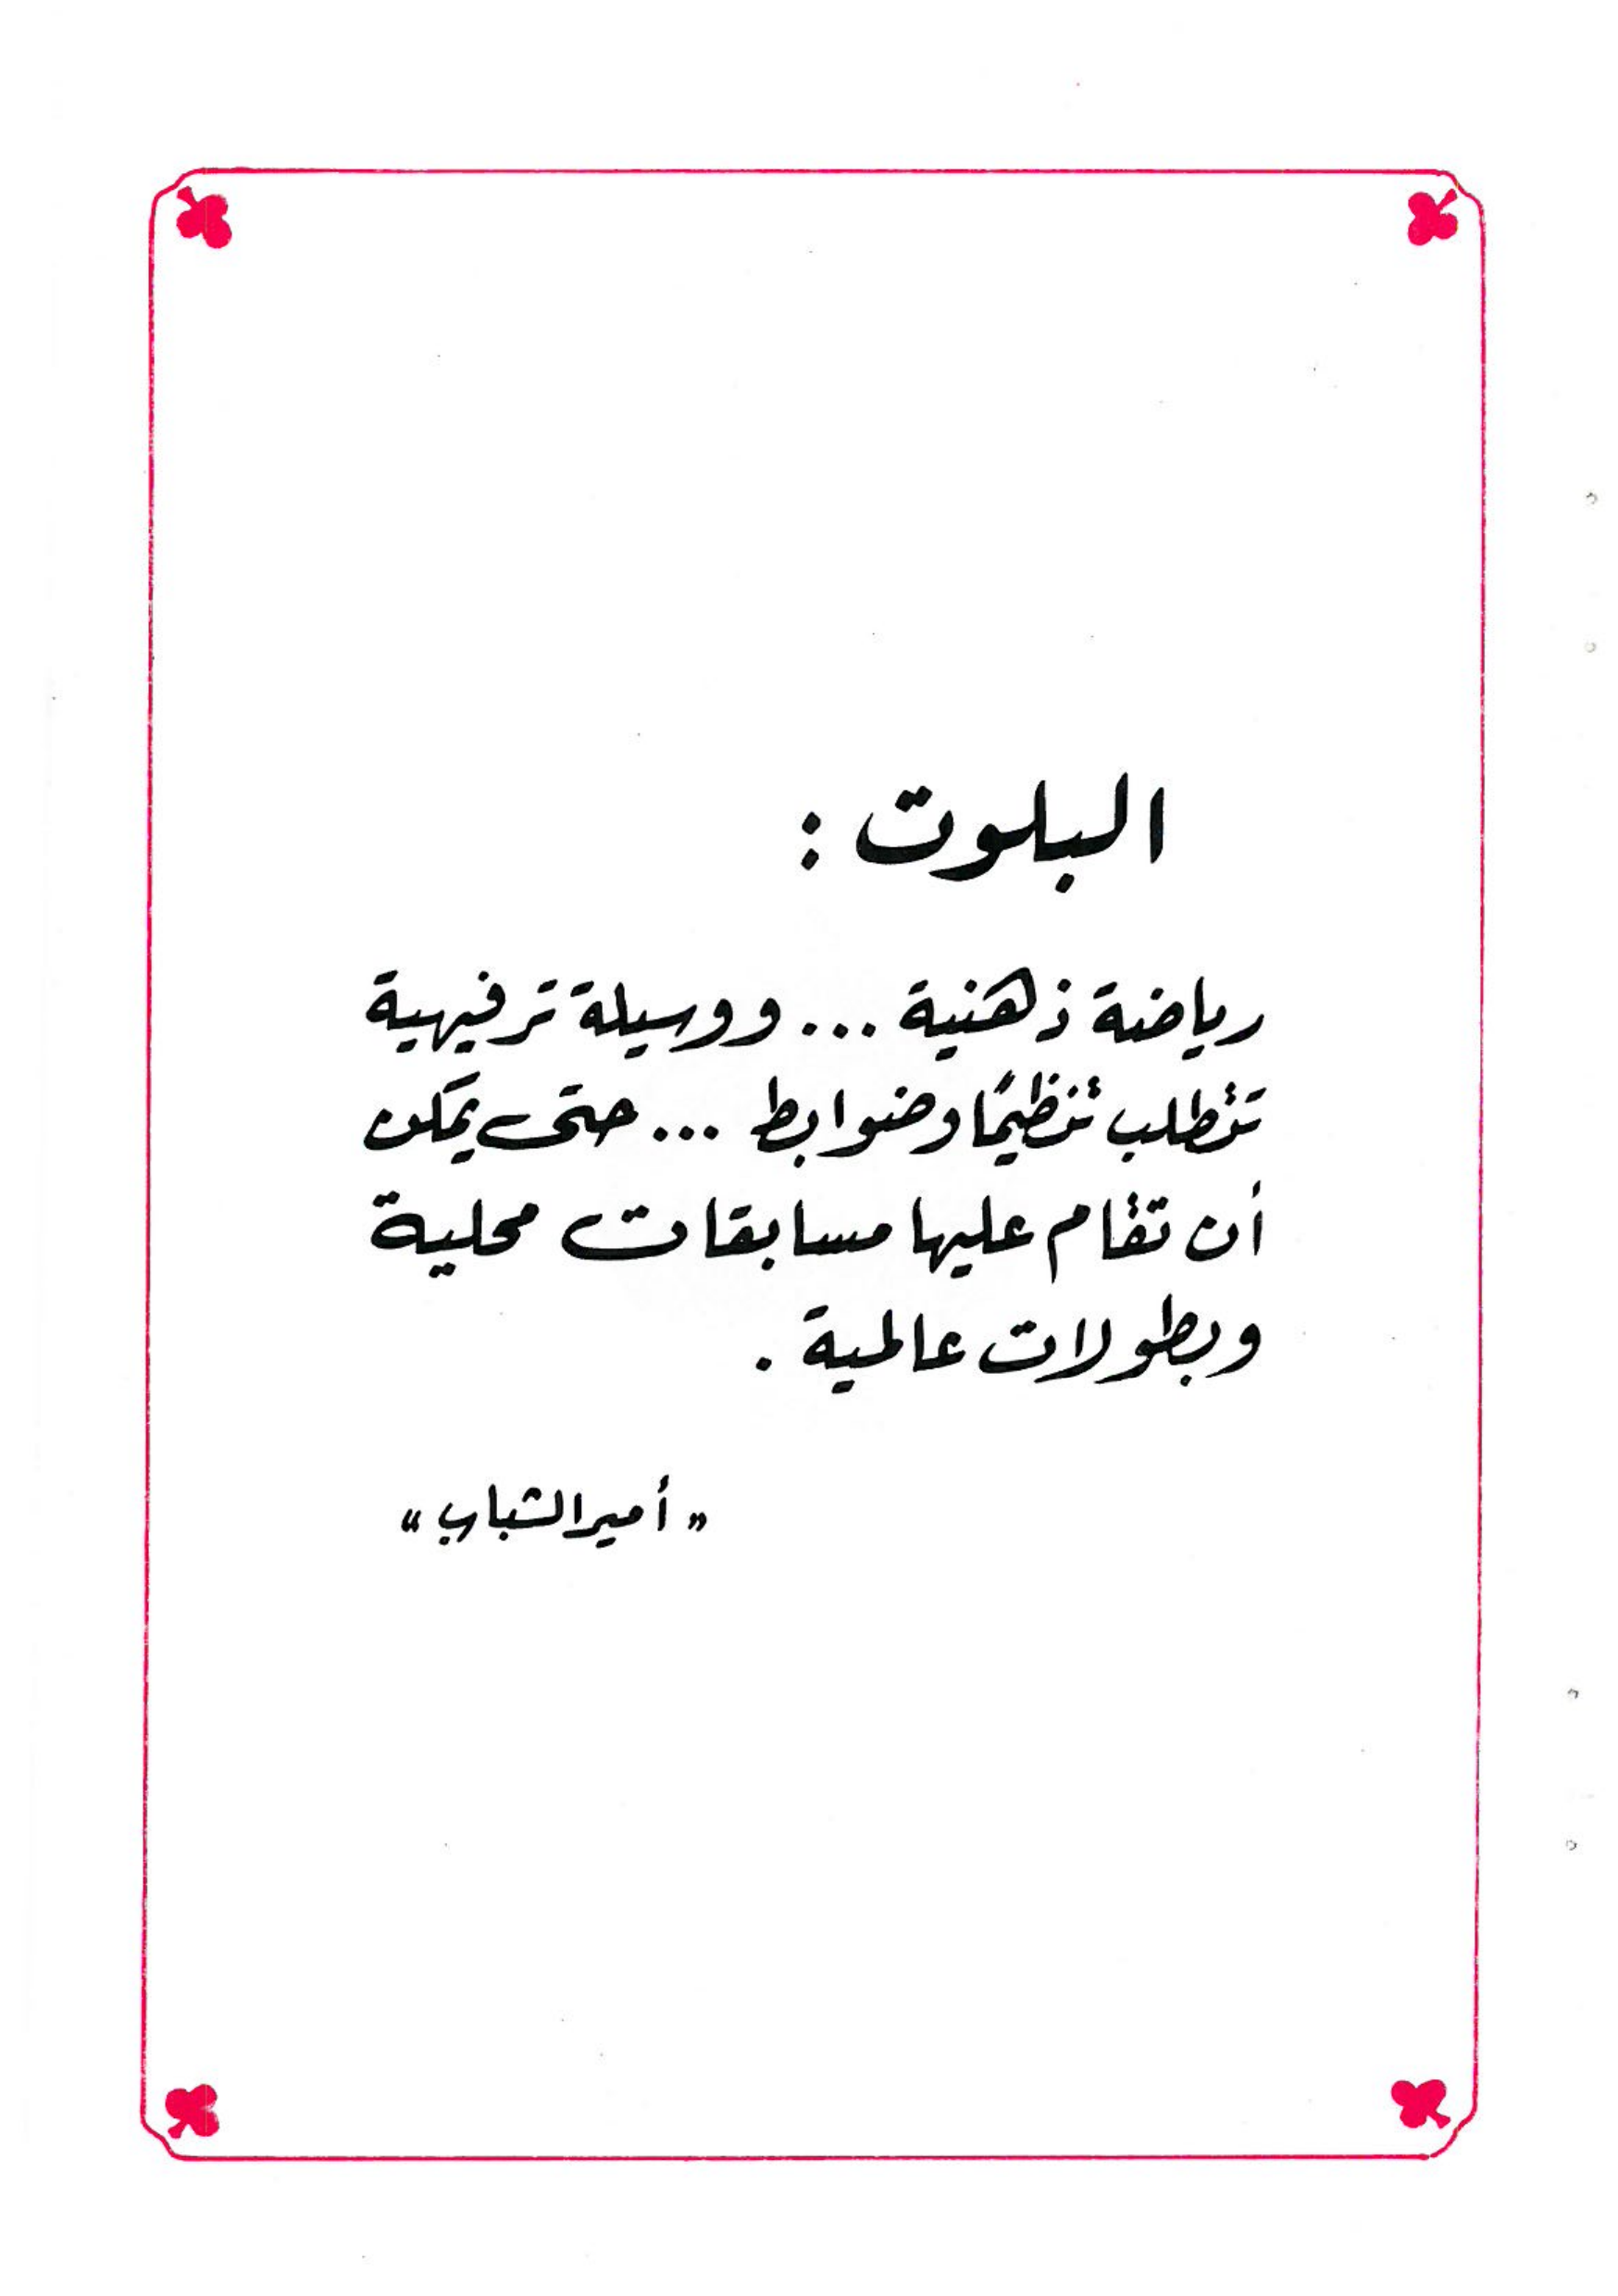 البلوت :
رياضة ذهنية ... ووسيلة ترفيهية
تتطلب تنظيمًا وضوابط ... حتى يمكن
أن تقام عليها مسابقات محلية
وبطولات عالمية .
«أمير الشباب»